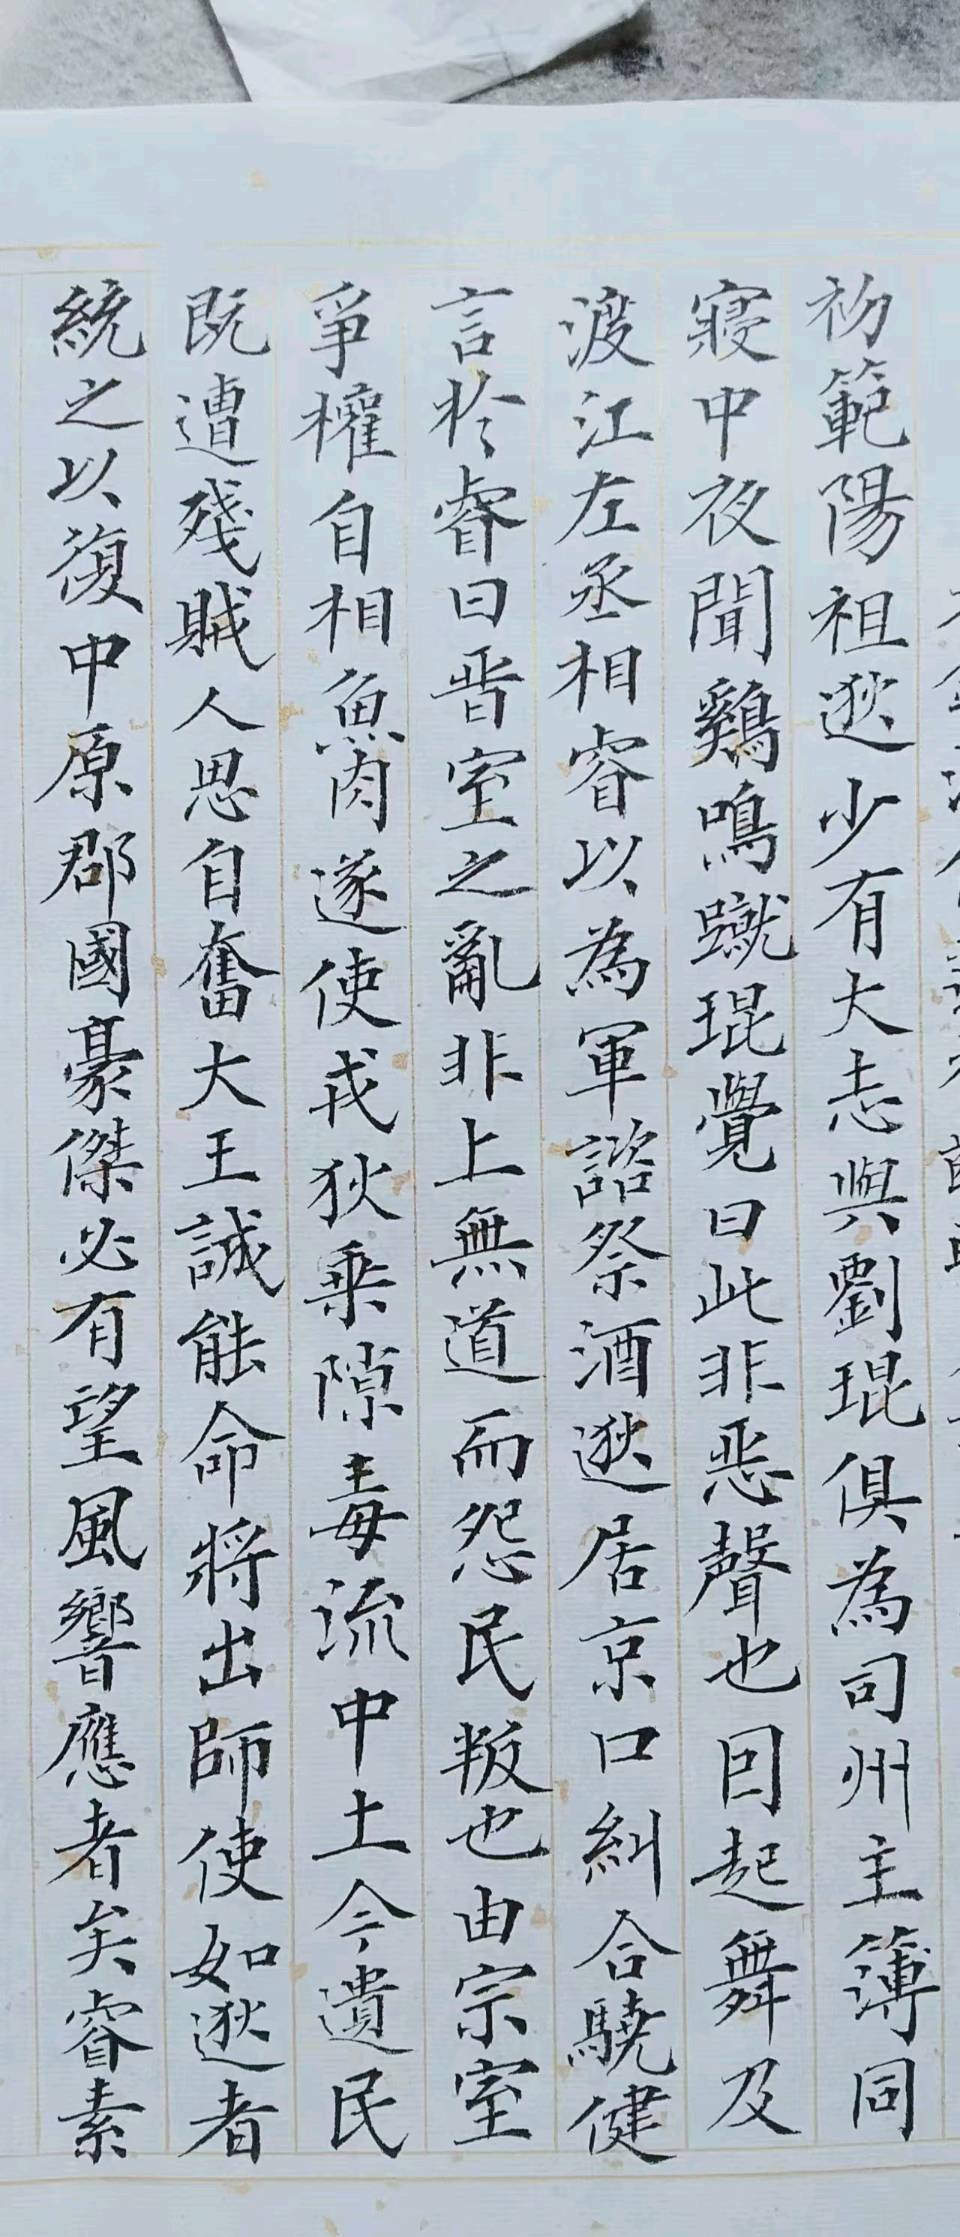 初範陽祖逖少有大志與劉琨俱為司州主簿同
寢中夜聞鷄鳴蹴琨覺曰此非惡聲也因起舞及
渡江左丞相睿以為軍諮祭酒逖居京口糾合驍健
言於睿曰晋室之亂非上無道而怨民叛也由宗室
爭權自相魚肉遂使戎狄乗隙毒流中土今遺民
既遭殘賊人思自奮大王誠能命將出師使如逖者
統之以復中原郡國豪傑必有望風響應者矣睿素